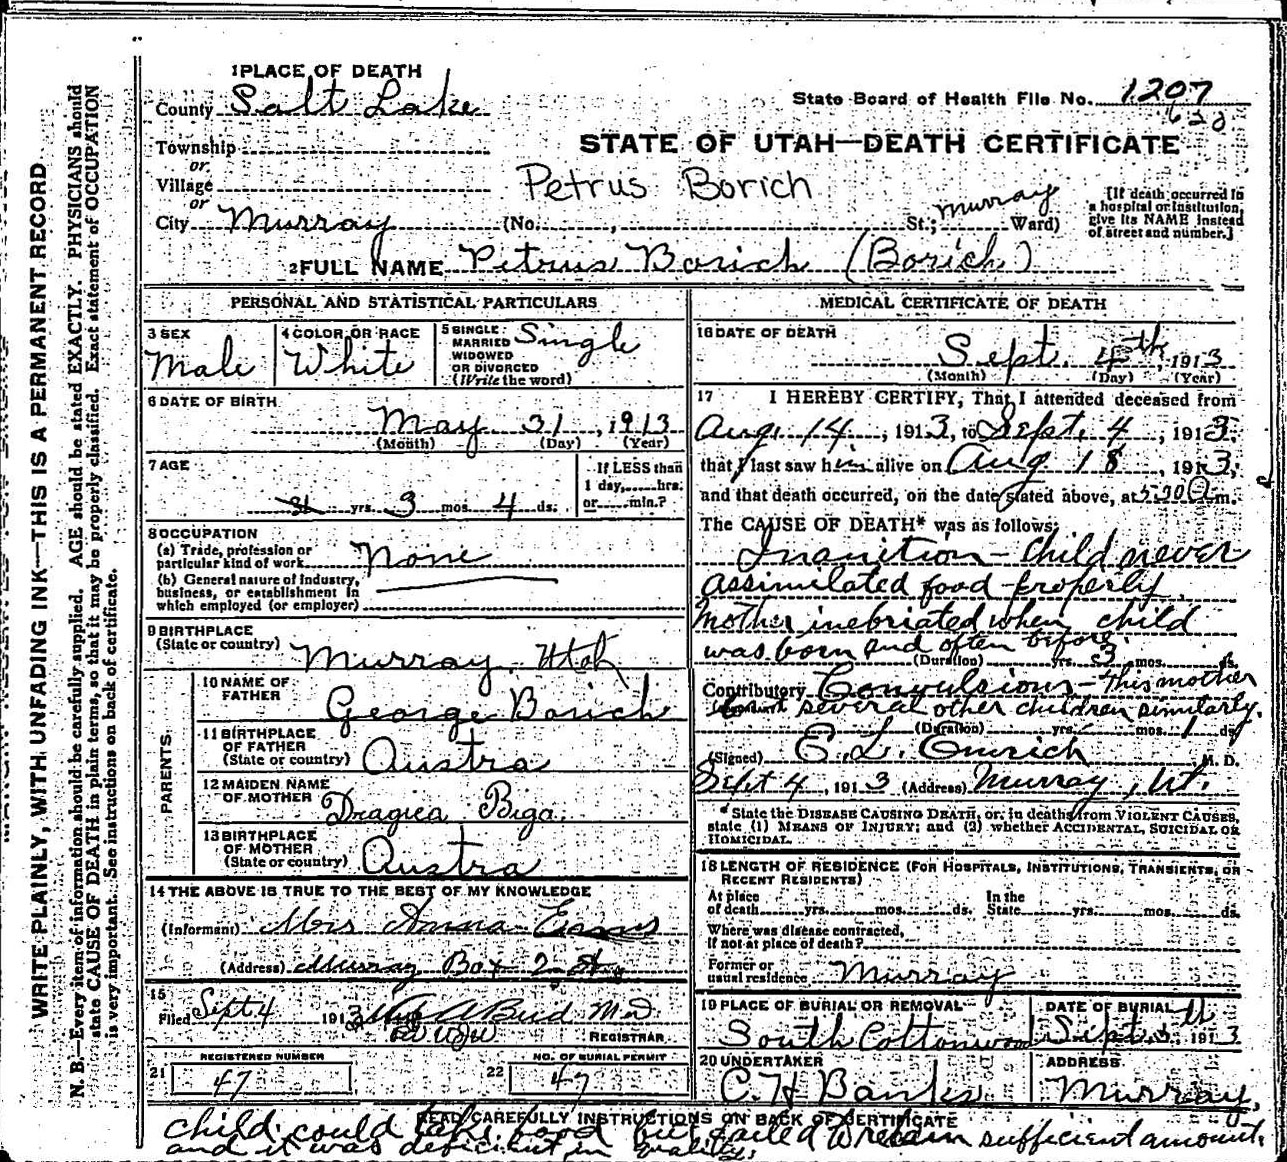 1 PLACE OF DEATH
County Salt Lake
State Board of Health File No. 1207
Township
STATE OF UTAH—DEATH CERTIFICATE
or
Village
Petrus Borich
or
City Murray (No. , St.; Murray Ward)
[If death occurred in a hospital or institution, give its NAME instead of street and number.]
2 FULL NAME Petrus Borich (Borich)
PERSONAL AND STATISTICAL PARTICULARS
3 SEX Male
4 COLOR OR RACE White
5 SINGLE MARRIED WIDOWED OR DIVORCED (Write the word) Single
6 DATE OF BIRTH
May 31, 1913
(Month) (Day) (Year)
7 AGE
yrs. 3 mos. 4 ds.
If LESS than 1 day, hrs. or min.?
8 OCCUPATION
(a) Trade, profession or particular kind of work None
(b) General nature of industry, business, or establishment in which employed (or employer)
9 BIRTHPLACE
(State or country) Murray, Utah
PARENTS
10 NAME OF FATHER George Borich
11 BIRTHPLACE OF FATHER (State or country) Austra
12 MAIDEN NAME OF MOTHER Dragica Biga
13 BIRTHPLACE OF MOTHER (State or country) Austra
14 THE ABOVE IS TRUE TO THE BEST OF MY KNOWLEDGE
(Informant) Mrs Anna Evans
(Address) Murray Box
15
Filed Sept 4 1913
REGISTRAR
REGISTERED NUMBER
21 47
NO. OF BURIAL PERMIT
22 47
MEDICAL CERTIFICATE OF DEATH
16 DATE OF DEATH
Sept. 4th, 1913
(Month) (Day) (Year)
17 I HEREBY CERTIFY, That I attended deceased from
Aug. 14, 1913, to Sept. 4, 1913,
that I last saw him alive on Aug 18, 1913,
and that death occurred, on the date stated above, at 5:00 A m.
The CAUSE OF DEATH* was as follows:
Inanition – Child never
assimilated food properly.
Mother inebriated when child
was born and often before.
(Duration) yrs. 3 mos. ds.
Contributory Convulsions – This mother
several other children similarly.
(Duration) yrs. mos. 1 ds.
(Signed) E. L. Emrich M. D.
Sept 4, 1913 (Address) Murray, Ut.
* State the DISEASE CAUSING DEATH, or, in deaths from VIOLENT CAUSES,
state (1) MEANS OF INJURY; and (2) whether ACCIDENTAL, SUICIDAL OR
HOMICIDAL.
18 LENGTH OF RESIDENCE (FOR HOSPITALS, INSTITUTIONS, TRANSIENTS, OR
RECENT RESIDENTS)
At place of death yrs. mos. ds. In the State yrs. mos. ds.
Where was disease contracted,
If not at place of death?
Former or usual residence Murray
19 PLACE OF BURIAL OR REMOVAL
South Cottonwood
DATE OF BURIAL
Sept. 1913
20 UNDERTAKER
C. H Banks
ADDRESS
Murray,
READ CAREFULLY INSTRUCTIONS ON BACK OF CERTIFICATE
child could take food but failed to retain sufficient amount,
and it was deficient in quality.
WRITE PLAINLY, WITH UNFADING INK—THIS IS A PERMANENT RECORD
N. B.—Every item of information should be carefully supplied. AGE should be stated EXACTLY. PHYSICIANS should
state CAUSE OF DEATH in plain terms, so that it may be properly classified. Exact statement of OCCUPATION
is very important. See instructions on back of certificate.